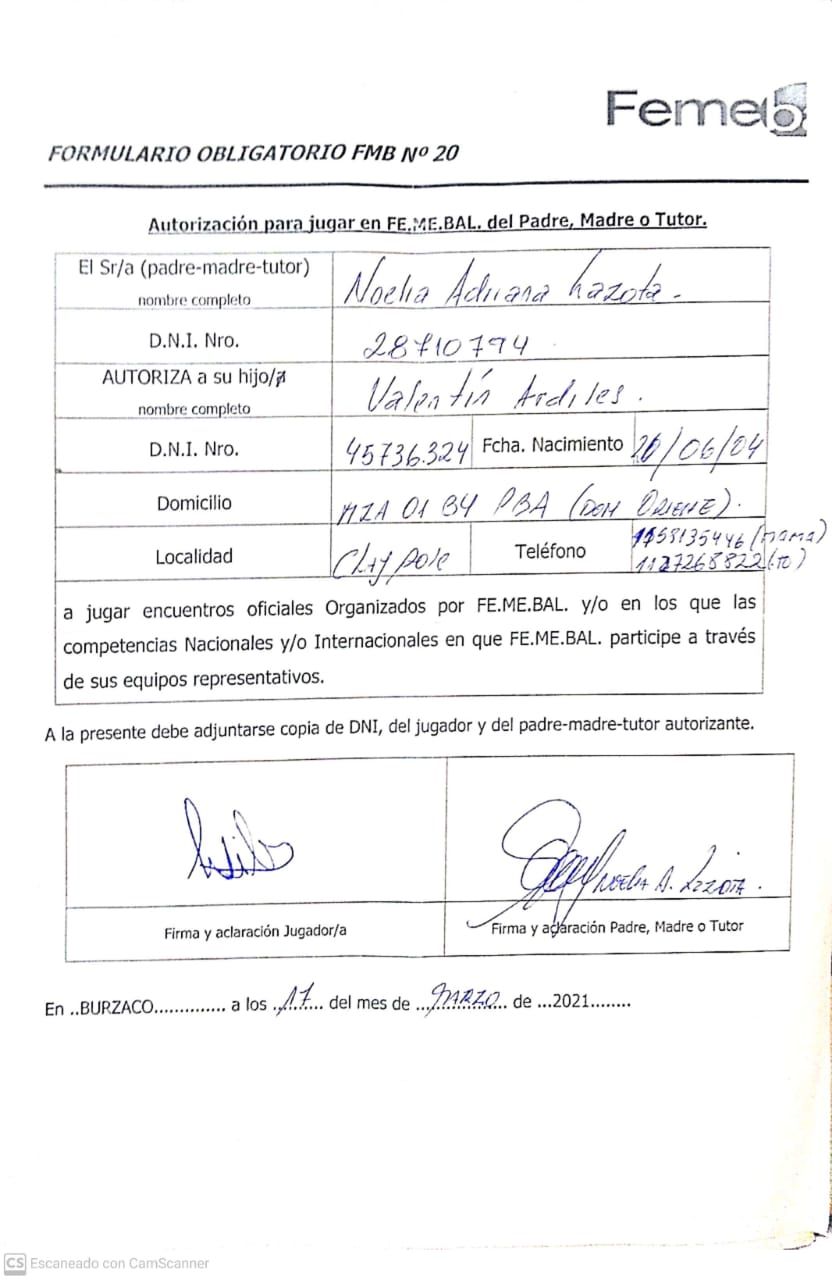 Femeb
FORMULARIO OBLIGATORIO FMB Nº 20
Autorización para jugar en FE.ME.BAL. del Padre, Madre o Tutor.
El Sr/a (padre-madre-tutor)
nombre completo
Noelia Adriana Lazota.
D.N.I. Nro.
28710794
AUTORIZA a su hijo/a
nombre completo
Valentín Ardiles.
D.N.I. Nro.
45736.324
Fcha. Nacimiento
/06/04
Domicilio
MZA 01 B4 PBA (DON ORIONE).
Localidad
Claypole
Teléfono
1158135446 (mama)
1127268822 (YO)
a jugar encuentros oficiales Organizados por FE.ME.BAL. y/o en los que las
competencias Nacionales y/o Internacionales en que FE.ME.BAL. participe a través
de sus equipos representativos.
A la presente debe adjuntarse copia de DNI, del jugador y del padre-madre-tutor autorizante.
NOELIA A.
Firma y aclaración Jugador/a
Firma y aclaración Padre, Madre o Tutor
En ..BURZACO.............. a los .17...... del mes de ..MARZO.. de ...2021........
CS Escaneado con CamScanner